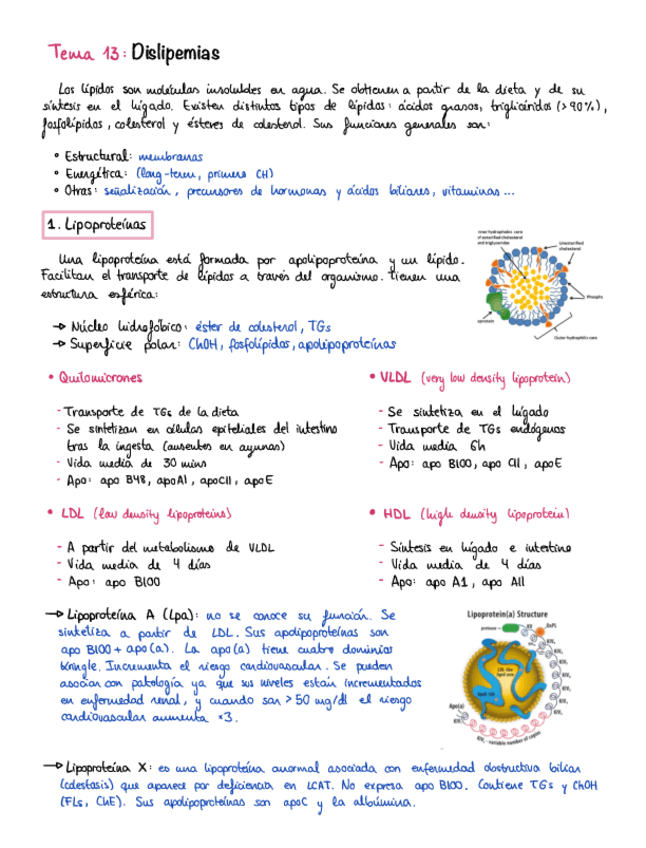 Tema 13: Dislipemias
Los lípidos son moléculas insolubles en agua. Se obtienen a partir de la dieta y de su
síntesis en el hígado. Existen distintos tipos de lípidos: ácidos grasos, triglicéridos (>90%),
fosfolípidos, colesterol y ésteres de colesterol. Sus funciones generales son:
• Estructural: membranas
• Energética: (long-term, primero CH)
• Otras: señalización, precursores de hormonas y ácidos biliares, vitaminas...
1. Lipoproteínas
Una lipoproteína está formada por apolipoproteína y un lípido.
Facilitan el transporte de lípidos a través del organismo. Tienen una
estructura esférica:
→ Núcleo hidrofóbico: éster de colesterol, TGs
→ Superficie polar: ChOH, fosfolípidos, apolipoproteínas
Inner hydrophobic core
of esterified cholesterol
and triglycerides
Unesterified
cholesterol
Outer hydrophilic core
• Quilomicrones
- Transporte de TGs de la dieta
- Se sintetizan en células epiteliales del intestino
tras la ingesta (ausentes en ayunas)
- Vida media de 30 mins
- Apo: apo B48, apoA1, apoCII, apoE
• VLDL (very low density lipoprotein)
- Se sintetiza en el hígado
- Transporte de TGs endógenos
- Vida media 6h
- Apo: apo B100, apo CII, apoE
• LDL (low density lipoproteins)
- A partir del metabolismo de VLDL
- Vida media de 4 días
- Apo: apo B100
• HDL (high density lipoprotein)
- Síntesis en hígado e intestino
- Vida media de 4 días
- Apo: apo A1, apo AII
→ Lipoproteína A (Lpa): no se conoce su función. Se
sintetiza a partir de LDL. Sus apolipoproteínas son
apo B100 + apo(a). La apo(a) tiene cuatro dominios
kringle. Incrementa el riesgo cardiovascular. Se pueden
asociar con patología ya que sus niveles están incrementados
en enfermedad renal, y cuando son >50 mg/dl el riesgo
cardiovascular aumenta x3.
Lipoprotein(a) Structure
protease
KV
OxPL
LDL-like
lipid core
ApoB 100
Apo(a)
KIV₂ - variable number of copies
→ Lipoproteína X: es una lipoproteína anormal asociada con enfermedad obstructiva biliar
(colestasis) que aparece por deficiencia en LCAT. No expresa apo B100. Contiene TGs y ChOH
(FLs, ChE). Sus apolipoproteínas son apoC y la albúmina.